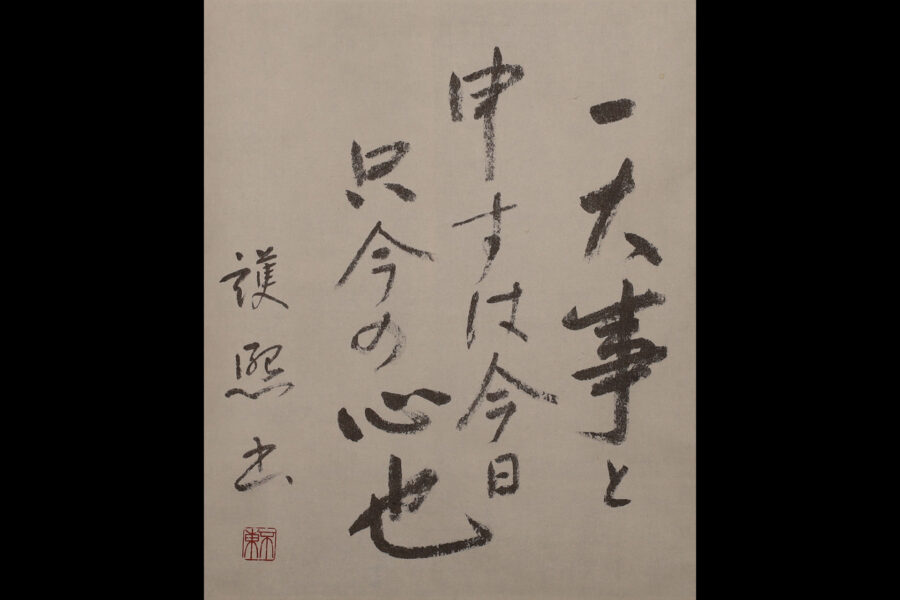 一大事と
申すは今日
只今の心也
護熙書